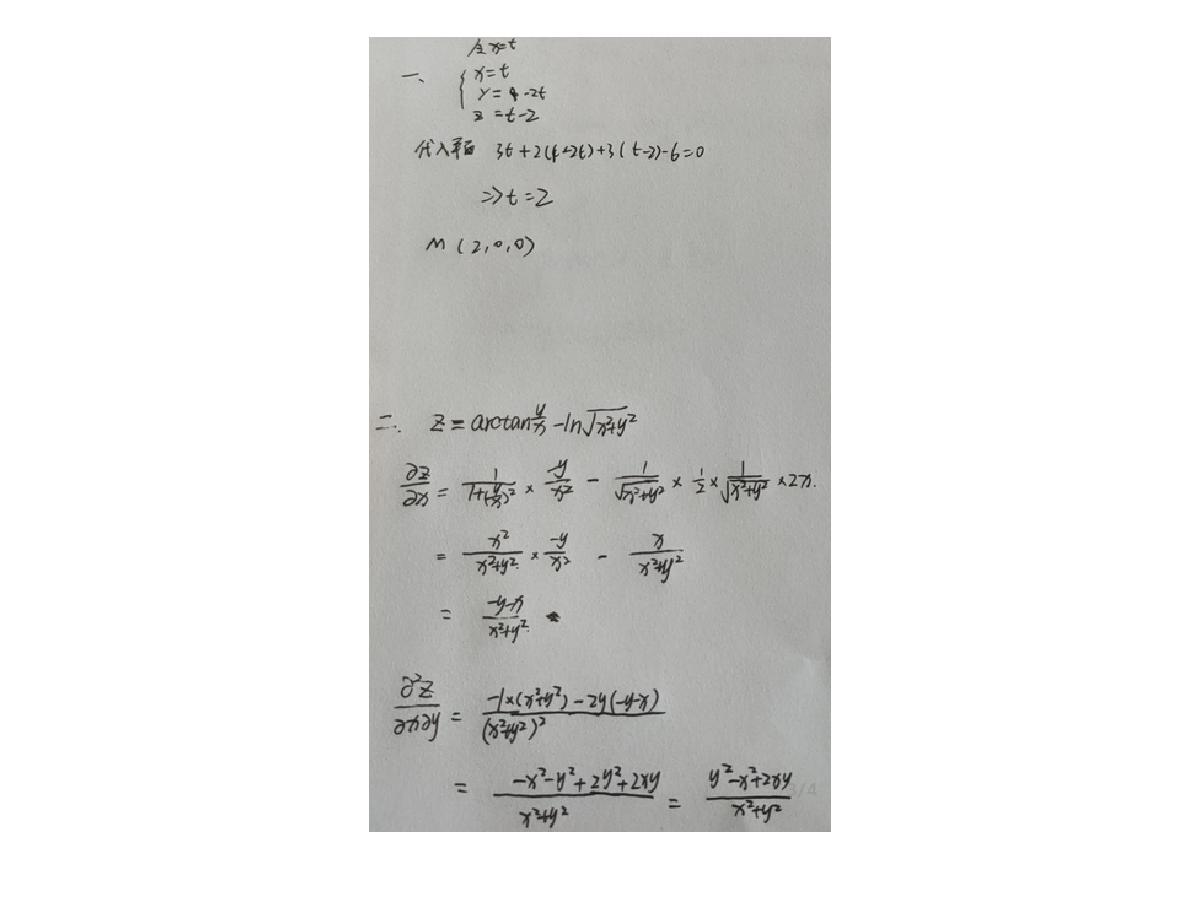 令x=t
一、 { x=t
y=4-2t
z=t-2
代入平面 3t+2(4-2t)+3(t-2)-6=0
⇒t=2
M(2,0,0)
二、 z=arctan\frac{y}{x}-ln\sqrt{x²+y²}
\frac{∂z}{∂x}=\frac{1}{1+(\frac{y}{x})²}×\frac{-y}{x²}-\frac{1}{\sqrt{x²+y²}}×\frac{1}{2}×\frac{1}{\sqrt{x²+y²}}×2x.
=\frac{x²}{x²+y²}×\frac{-y}{x²}-\frac{x}{x²+y²}
=\frac{-y-x}{x²+y²}
\frac{∂²z}{∂x∂y}=\frac{-1×(x²+y²)-2y(-y-x)}{(x²+y²)²}
=\frac{-x²-y²+2y²+2xy}{x²+y²}=\frac{y²-x²+2xy}{x²+y²}
3/4